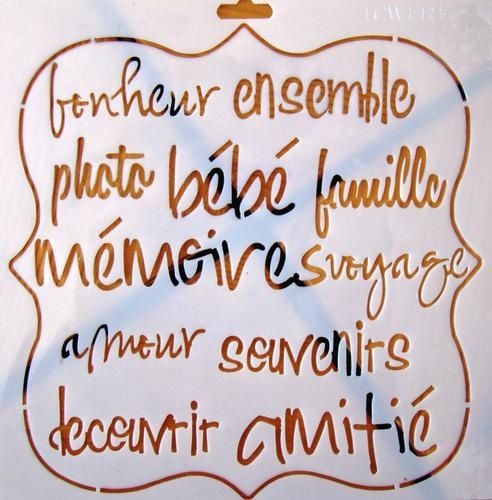 bonheur ensemble
photo bébé famille
mémoires voyage
amour souvenirs
decouvrir amitié